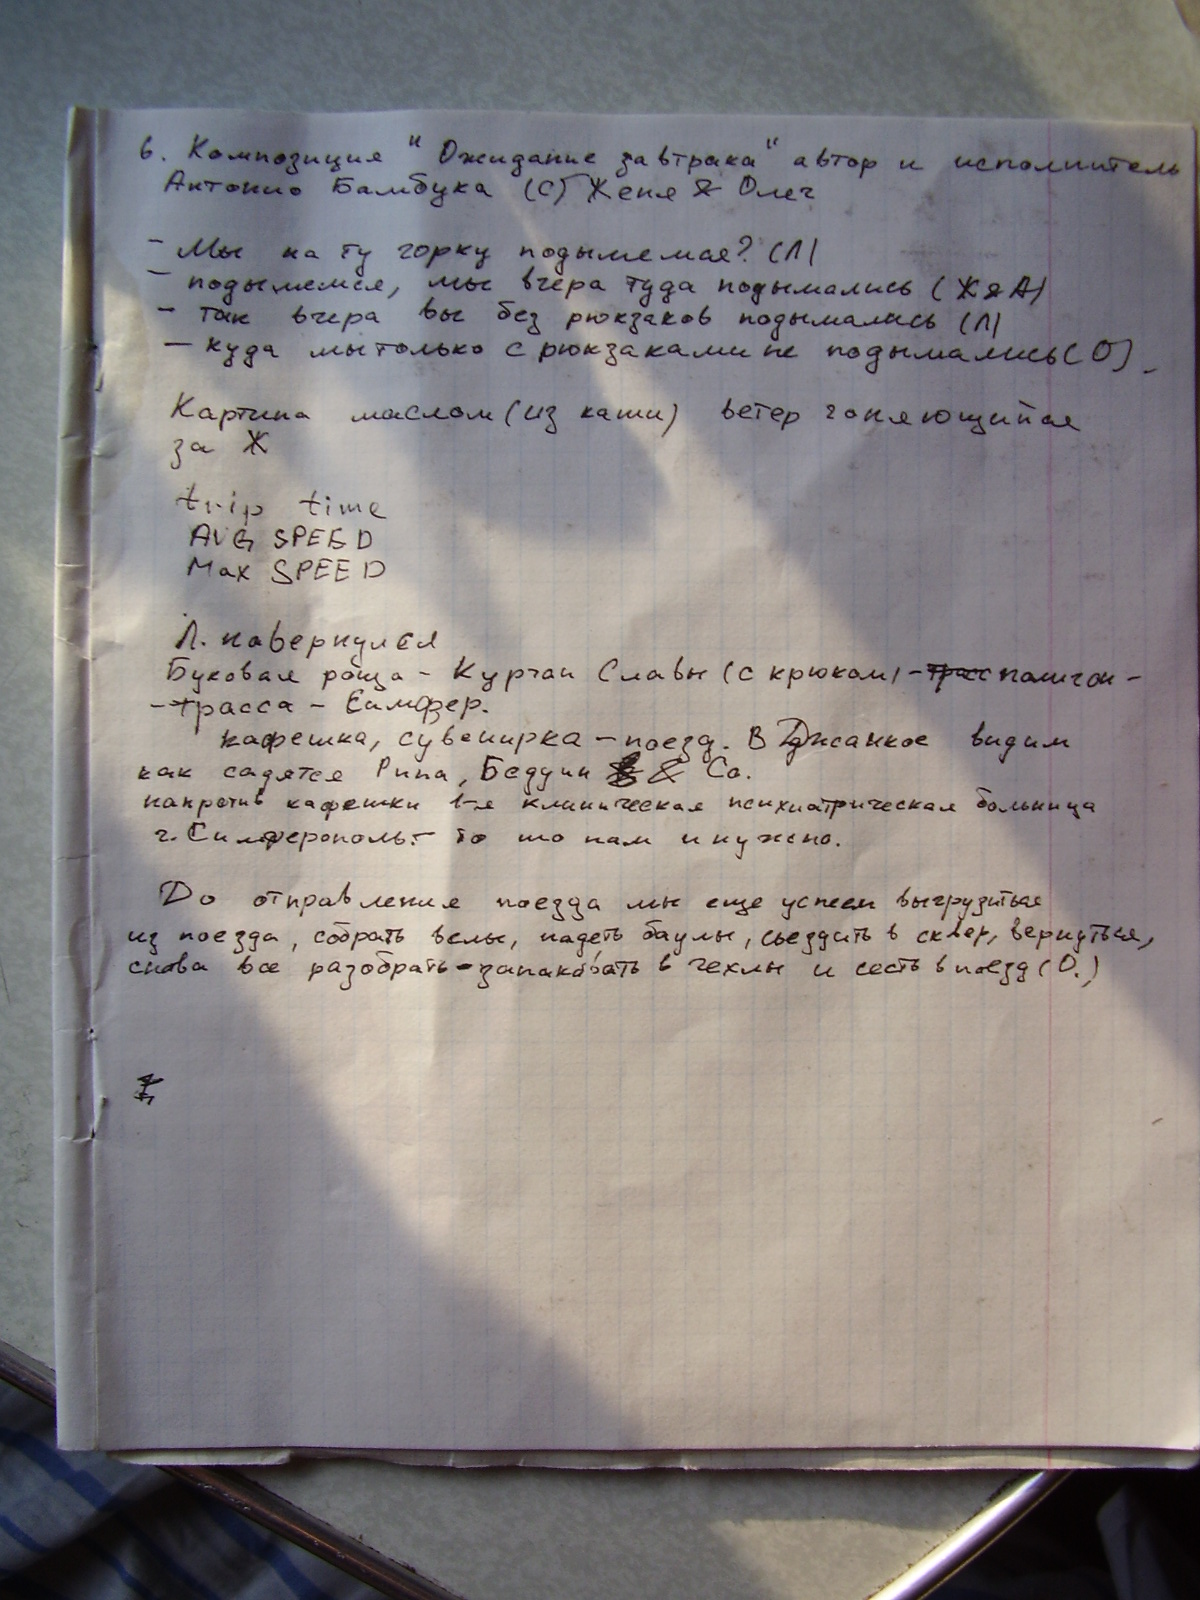 6. Композиция "Ожидание завтрака" автор и исполнитель
Антонио Бамбука (С) Женя & Олег
- Мы на ту горку подымемся? (Л)
- подымемся, мы вчера туда подымались (Ж & А)
- так вчера вы без рюкзаков подымались (Л)
- куда мы только с рюкзаками не подымались (О).
Картина маслом (из каши) ветер гоняющийся
за Ж
trip time
AVG SPEED
Max SPEED
Л. навернулся
Буковая роща - Курган Славы (с крюком) - трасс полигон -
- трасса - Симфер.
кафешка, сувенирка - поезд. В Джанкое видим
как садятся Рипа, Бедуин & Co.
напротив кафешки 1-я клиническая психиатрическая больница
г. Симферополь - то шо нам и нужно.
До отправления поезда мы еще успеем выгрузиться
из поезда, собрать велы, надеть баулы, сьездить в сквер, вернуться,
снова все разобрать-запаковать в чехлы и сесть в поезд (О.)